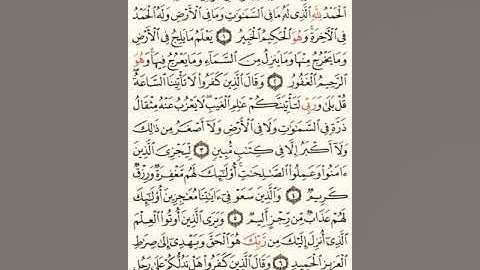 ٱلْحَمْدُ لِلَّهِ ٱلَّذِى لَهُۥ مَا فِى ٱلسَّمَٰوَٰتِ وَمَا فِى ٱلْأَرْضِ وَلَهُ ٱلْحَمْدُ
فِى ٱلْءَاخِرَةِ ۚ وَهُوَ ٱلْحَكِيمُ ٱلْخَبِيرُ ١ يَعْلَمُ مَا يَلِجُ فِى ٱلْأَرْضِ
وَمَا يَخْرُجُ مِنْهَا وَمَا يَنزِلُ مِنَ ٱلسَّمَآءِ وَمَا يَعْرُجُ فِيهَا ۚ وَهُوَ
ٱلرَّحِيمُ ٱلْغَفُورُ ٢ وَقَالَ ٱلَّذِينَ كَفَرُوا۟ لَا تَأْتِينَا ٱلسَّاعَةُ ۖ
قُلْ بَلَىٰ وَرَبِّى لَتَأْتِيَنَّكُمْ عَٰلِمِ ٱلْغَيْبِ ۖ لَا يَعْزُبُ عَنْهُ مِثْقَالُ
ذَرَّةٍ فِى ٱلسَّمَٰوَٰتِ وَلَا فِى ٱلْأَرْضِ وَلَآ أَصْغَرُ مِن ذَٰلِكَ
وَلَآ أَكْبَرُ إِلَّا فِى كِتَٰبٍ مُّبِينٍ ٣ لِّيَجْزِىَ ٱلَّذِينَ
ءَامَنُوا۟ وَعَمِلُوا۟ ٱلصَّٰلِحَٰتِ ۚ أُو۟لَٰٓئِكَ لَهُم مَّغْفِرَةٌ وَرِزْقٌ
كَرِيمٌ ٤ وَٱلَّذِينَ سَعَوْ فِىٓ ءَايَٰتِنَا مُعَٰجِزِينَ أُو۟لَٰٓئِكَ
لَهُمْ عَذَابٌ مِّن رِّجْزٍ أَلِيمٌ ٥ وَيَرَى ٱلَّذِينَ أُوتُوا۟ ٱلْعِلْمَ
ٱلَّذِىٓ أُنزِلَ إِلَيْكَ مِن رَّبِّكَ هُوَ ٱلْحَقَّ وَيَهْدِىٓ إِلَىٰ صِرَٰطِ
ٱلْعَزِيزِ ٱلْحَمِيدِ ٦ وَقَالَ ٱلَّذِينَ كَفَرُوا۟ هَلْ نَدُلُّكُمْ عَلَىٰ رَجُلٍ